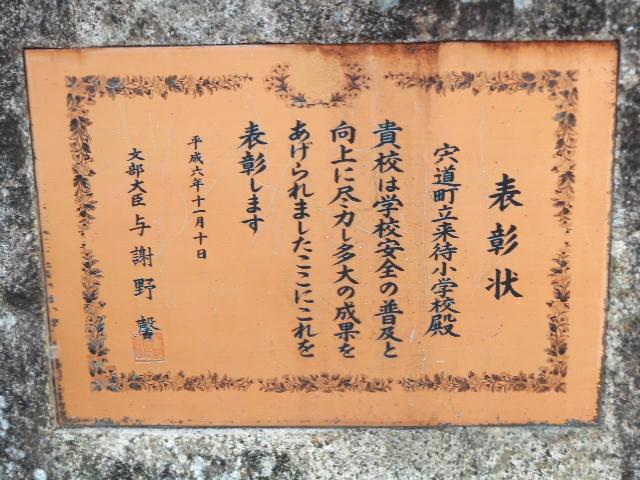 表彰状
宍道町立来待小学校殿
貴校は学校安全の普及と
向上に尽力し多大の成果を
あげられましたここにこれを
表彰します
平成六年十一月十日
文部大臣 与謝野 馨